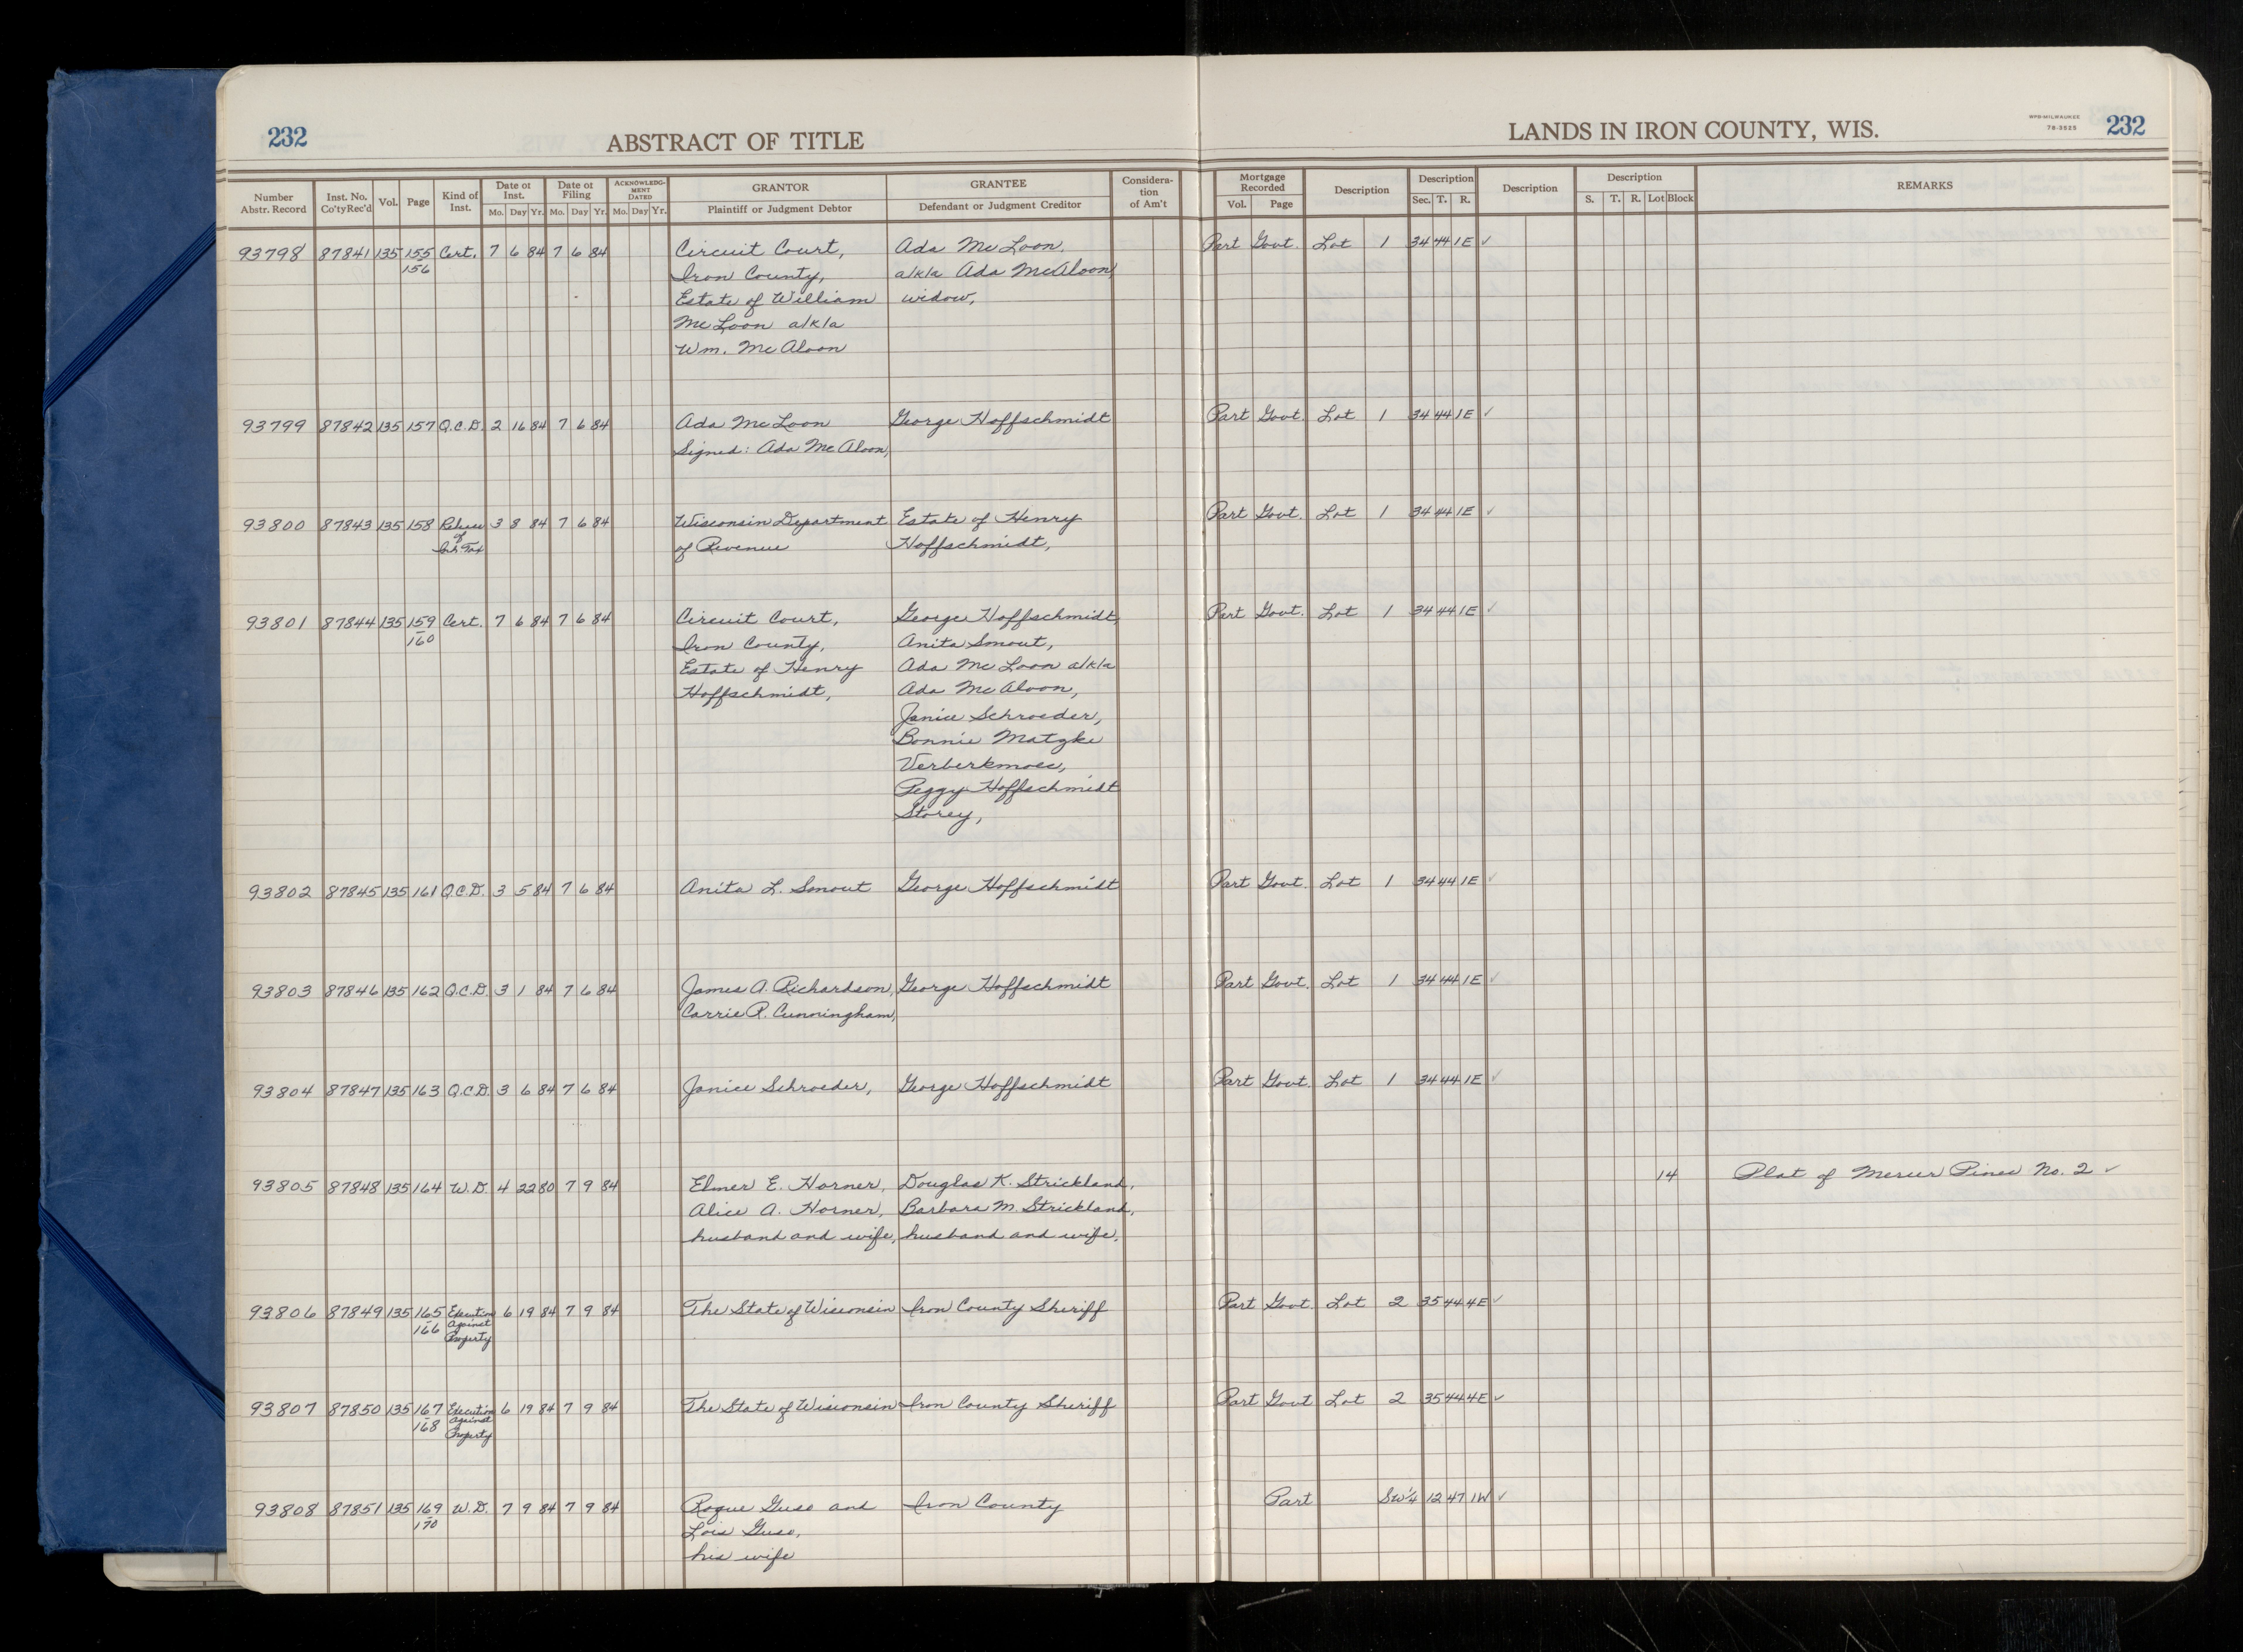 232
ABSTRACT OF TITLE
LANDS IN IRON COUNTY, WIS.
NPB-MILWAUKEE
78-3525
232
Number Abstr. Record | Inst. No. Co'ty Rec'd | Vol. | Page | Kind of Inst. | Date of Inst. Mo. Day Yr. | Date of Filing Mo. Day Yr. | ACKNOWLEDGMENT DATED Mo. Day Yr. | GRANTOR Plaintiff or Judgment Debtor | GRANTEE Defendant or Judgment Creditor | Consideration of Am't | Mortgage Recorded Vol. Page | Description | Description Sec. T. R. | Description | Description S. T. R. Lot Block | REMARKS
93798 87841 135 155 Cert. 7 6 84 7 6 84 Circuit Court, Ada McLoon, Part Govt. Lot 1 34 44 1E ✓
156 Iron County, a/k/a Ada McAloon,
Estate of William widow,
McLoon a/k/a
Wm. McAloon
93799 87842 135 157 Q.C.D. 2 16 84 7 6 84 Ada McLoon George Hoffschmidt Part Govt. Lot 1 34 44 1E ✓
Signed: Ada McAloon,
93800 87843 135 158 Release 3 8 84 7 6 84 Wisconsin Department Estate of Henry Part Govt. Lot 1 34 44 1E ✓
of of Revenue Hoffschmidt,
Inh. Tax
93801 87844 135 159 Cert. 7 6 84 7 6 84 Circuit Court, George Hoffschmidt, Part Govt. Lot 1 34 44 1E ✓
160 Iron County, Anita Smout,
Estate of Henry Ada McLoon a/k/a
Hoffschmidt, Ada McAloon,
Janice Schroeder,
Bonnie Matzke
Verberkmoec,
Peggy Hoffschmidt
Storey,
93802 87845 135 161 Q.C.D. 3 5 84 7 6 84 Anita L. Smout George Hoffschmidt Part Govt. Lot 1 34 44 1E ✓
93803 87846 135 162 Q.C.D. 3 1 84 7 6 84 James A. Richardson, George Hoffschmidt Part Govt. Lot 1 34 44 1E ✓
Carrie R. Cunningham,
93804 87847 135 163 Q.C.D. 3 6 84 7 6 84 Janice Schroeder, George Hoffschmidt Part Govt. Lot 1 34 44 1E ✓
93805 87848 135 164 W.D. 4 22 80 7 9 84 Elmer E. Horner, Douglas K. Strickland, 14 Plat of Mercer Pines No. 2 ✓
Alice A. Horner, Barbara M. Strickland,
husband and wife, husband and wife,
93806 87849 135 165 Execution 6 19 84 7 9 84 The State of Wisconsin Iron County Sheriff Part Govt. Lot 2 35 44 4E ✓
166 Against
Property
93807 87850 135 167 Execution 6 19 84 7 9 84 The State of Wisconsin Iron County Sheriff Part Govt Lot 2 35 44 4E ✓
168 Against
Property
93808 87851 135 169 W.D. 7 9 84 7 9 84 Roque Guso and Iron County Part SW¼ 12 47 1W ✓
170 Lois Guso,
his wife